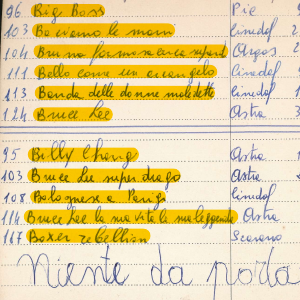 96 Big Boss Pic
103 Baciamo le mani Cinedof 2
104 Bruna formosa cerca superd Argos 2
111 Bello come un arcangelo Cinedof
113 Banda delle donne maledette Cinedof 1
124 Bruce Lee Astra 3
95 Billy Chang Astra 1
103 Bruce Lee super drago Astra
108 Bolognese a Parigi Cinedof 1
114 Bruce Lee la sua vita la sua leggenda Astra
167 Boxer rebellion
Niente da porta